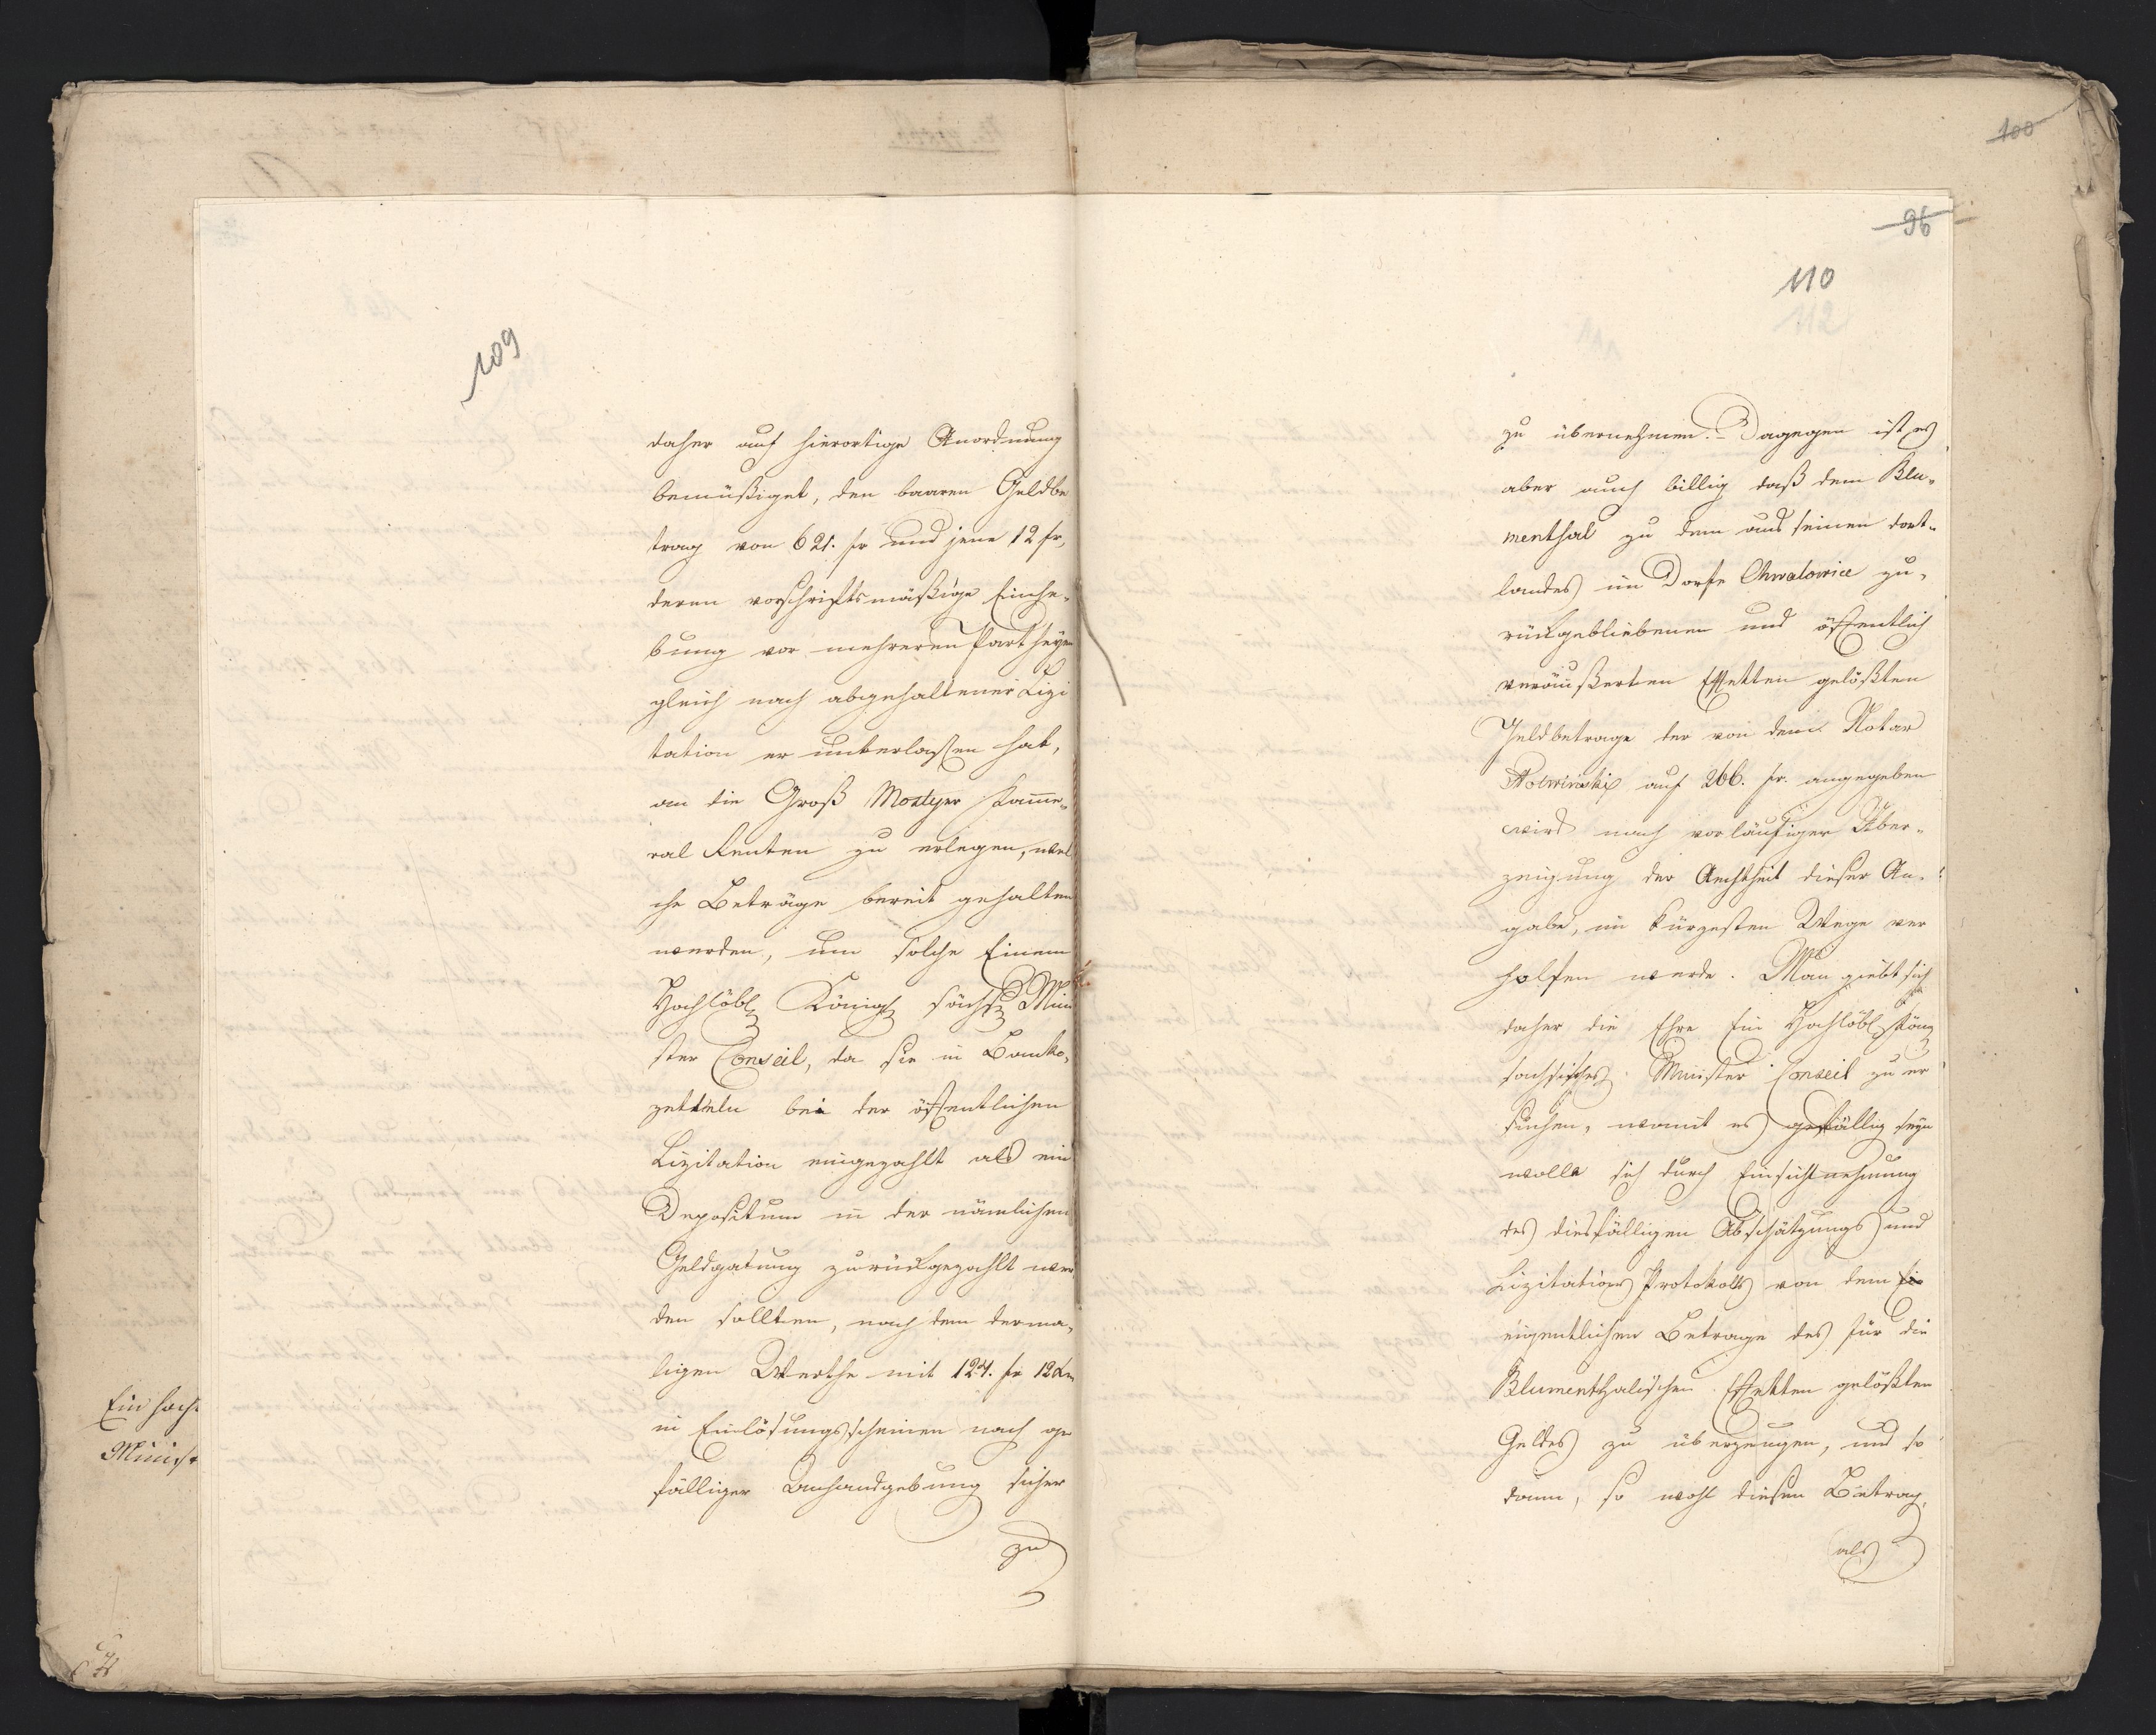 109
daher auf hierortige Anordnung
bemüßiget, den baaren Geldbe
trag von 621. fr und jene 12 fr,
deren vorschriftsmäßige Einhe„
bung vor mehreren Partheyen
gleich nach abgehaltener Lizi
tation er unterlassen hat,
an die Groß Mostyer Kamme„
ral Renten zu erlegen, wel
che Beträge bereit gehalten
werden, um solche Einem
Hochlöbl Königl sächs Mini
ster Conseil, da sie in Banko„
zetteln bei der öffentlichen
Lizitation eingezahlt als ein
Depositum in der nämlichen
Geldgatung zurückgezahlt wer
den sollten, nach dem derma„
ligen Werthe mit 124. fr 12 Kr
in Einlösungsscheinen nach ge
fälliger Anhandgebung sicher
zu
Ein hoch
Minist
100
96
110
112
zu übernehmen. – Dagegen ist es
aber auch billig daß dem Blu„
menthal zu dem aus seinen dort„
landes im Dorfe Chwalowice zu„
rückgebliebenen und öffentlich
veräußerten Effekten gelößten
Geldbetrage der von dem Notar
auf 266. fr. angegeben
wird nach vorläufiger Über„
zeigung der Aechtheit dieser An„
gabe, im kürzesten Wege ver
holfen werde. Man giebt sich
daher die Ehre Ein Hochlöbl König
sachsisches Minister Conseil zu er
suchen, womit es gefällig seyn
wolle sich durch Einsichtnehmung
des diesfälligen Abschätzungs und
Lizitations Protokolls von dem Ei
eigentlichen Betrage des für die
Blumenthalischen Effekten gelößten
Geldes zu überzeugen, und so
dann, so wohl diesen Betrag,
als